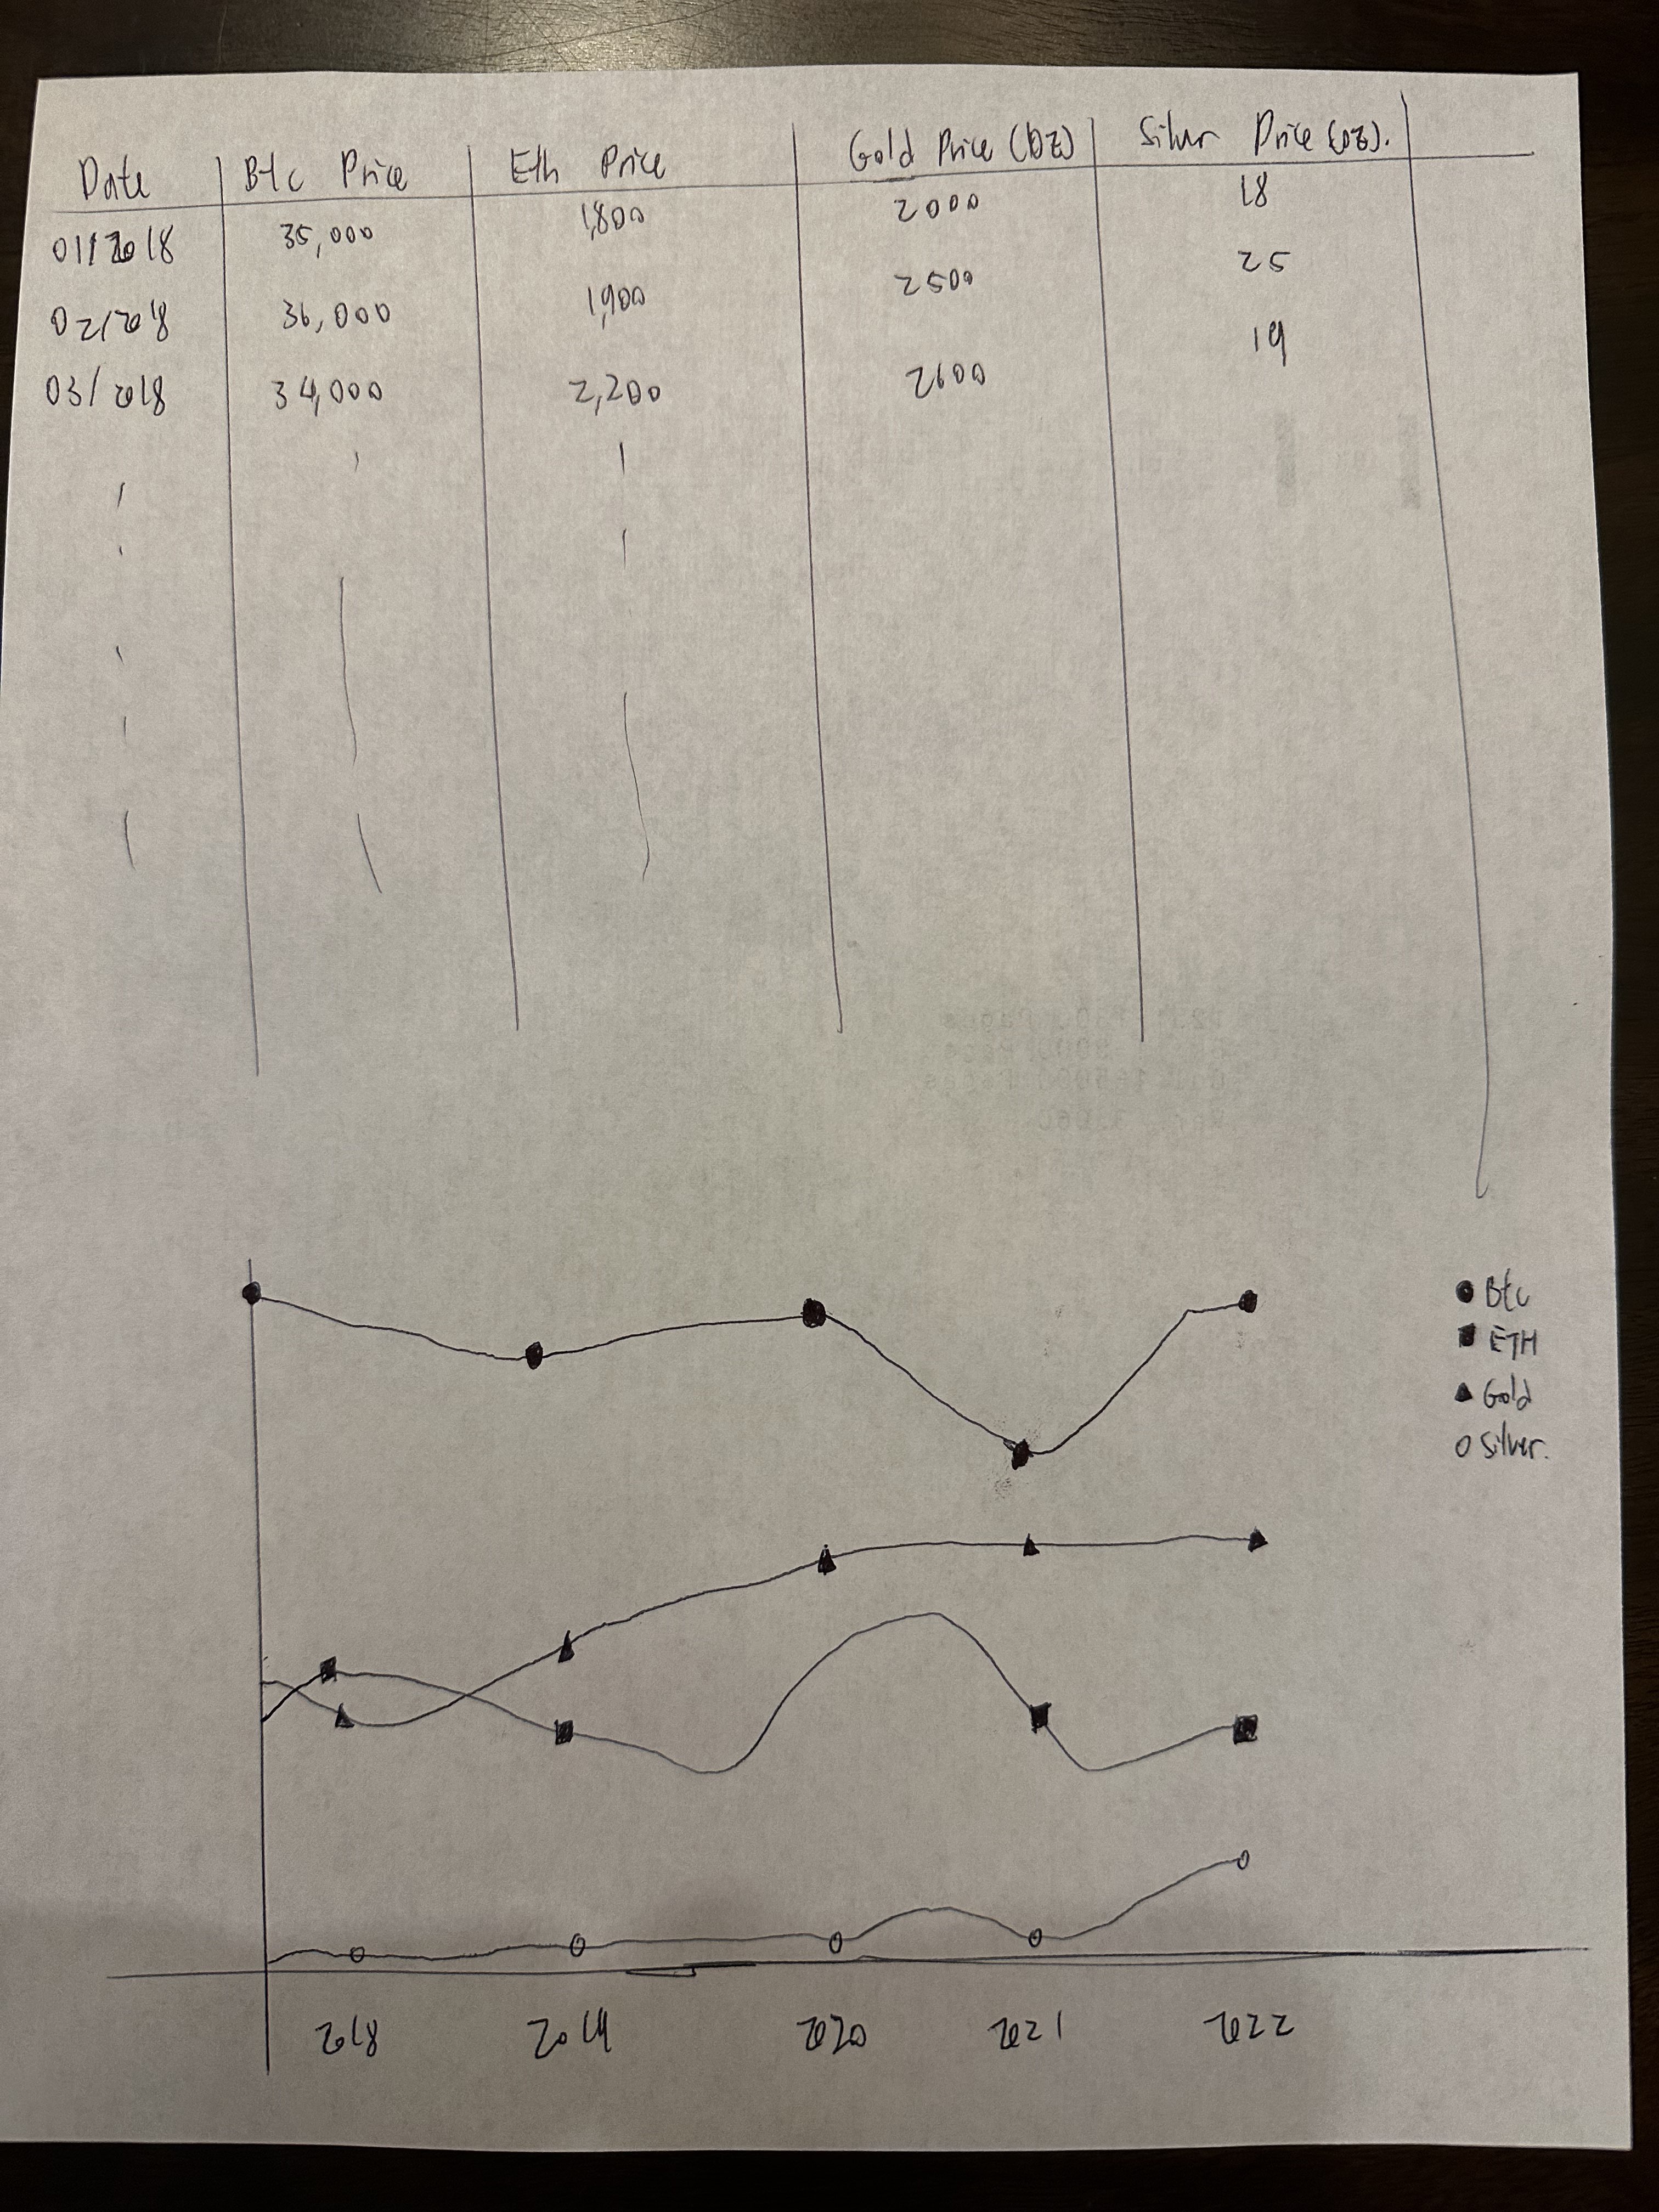 Date Btc Price Eth Price Gold Price (OZ) Silver Price (oz).
01/2018 35,000 1,800 2000 18
02/2018 36,000 1,900 2500 25
03/2018 34,000 2,200 2600 19
Btc
ETH
Gold
Silver.
2018 2019 2020 2021 2022